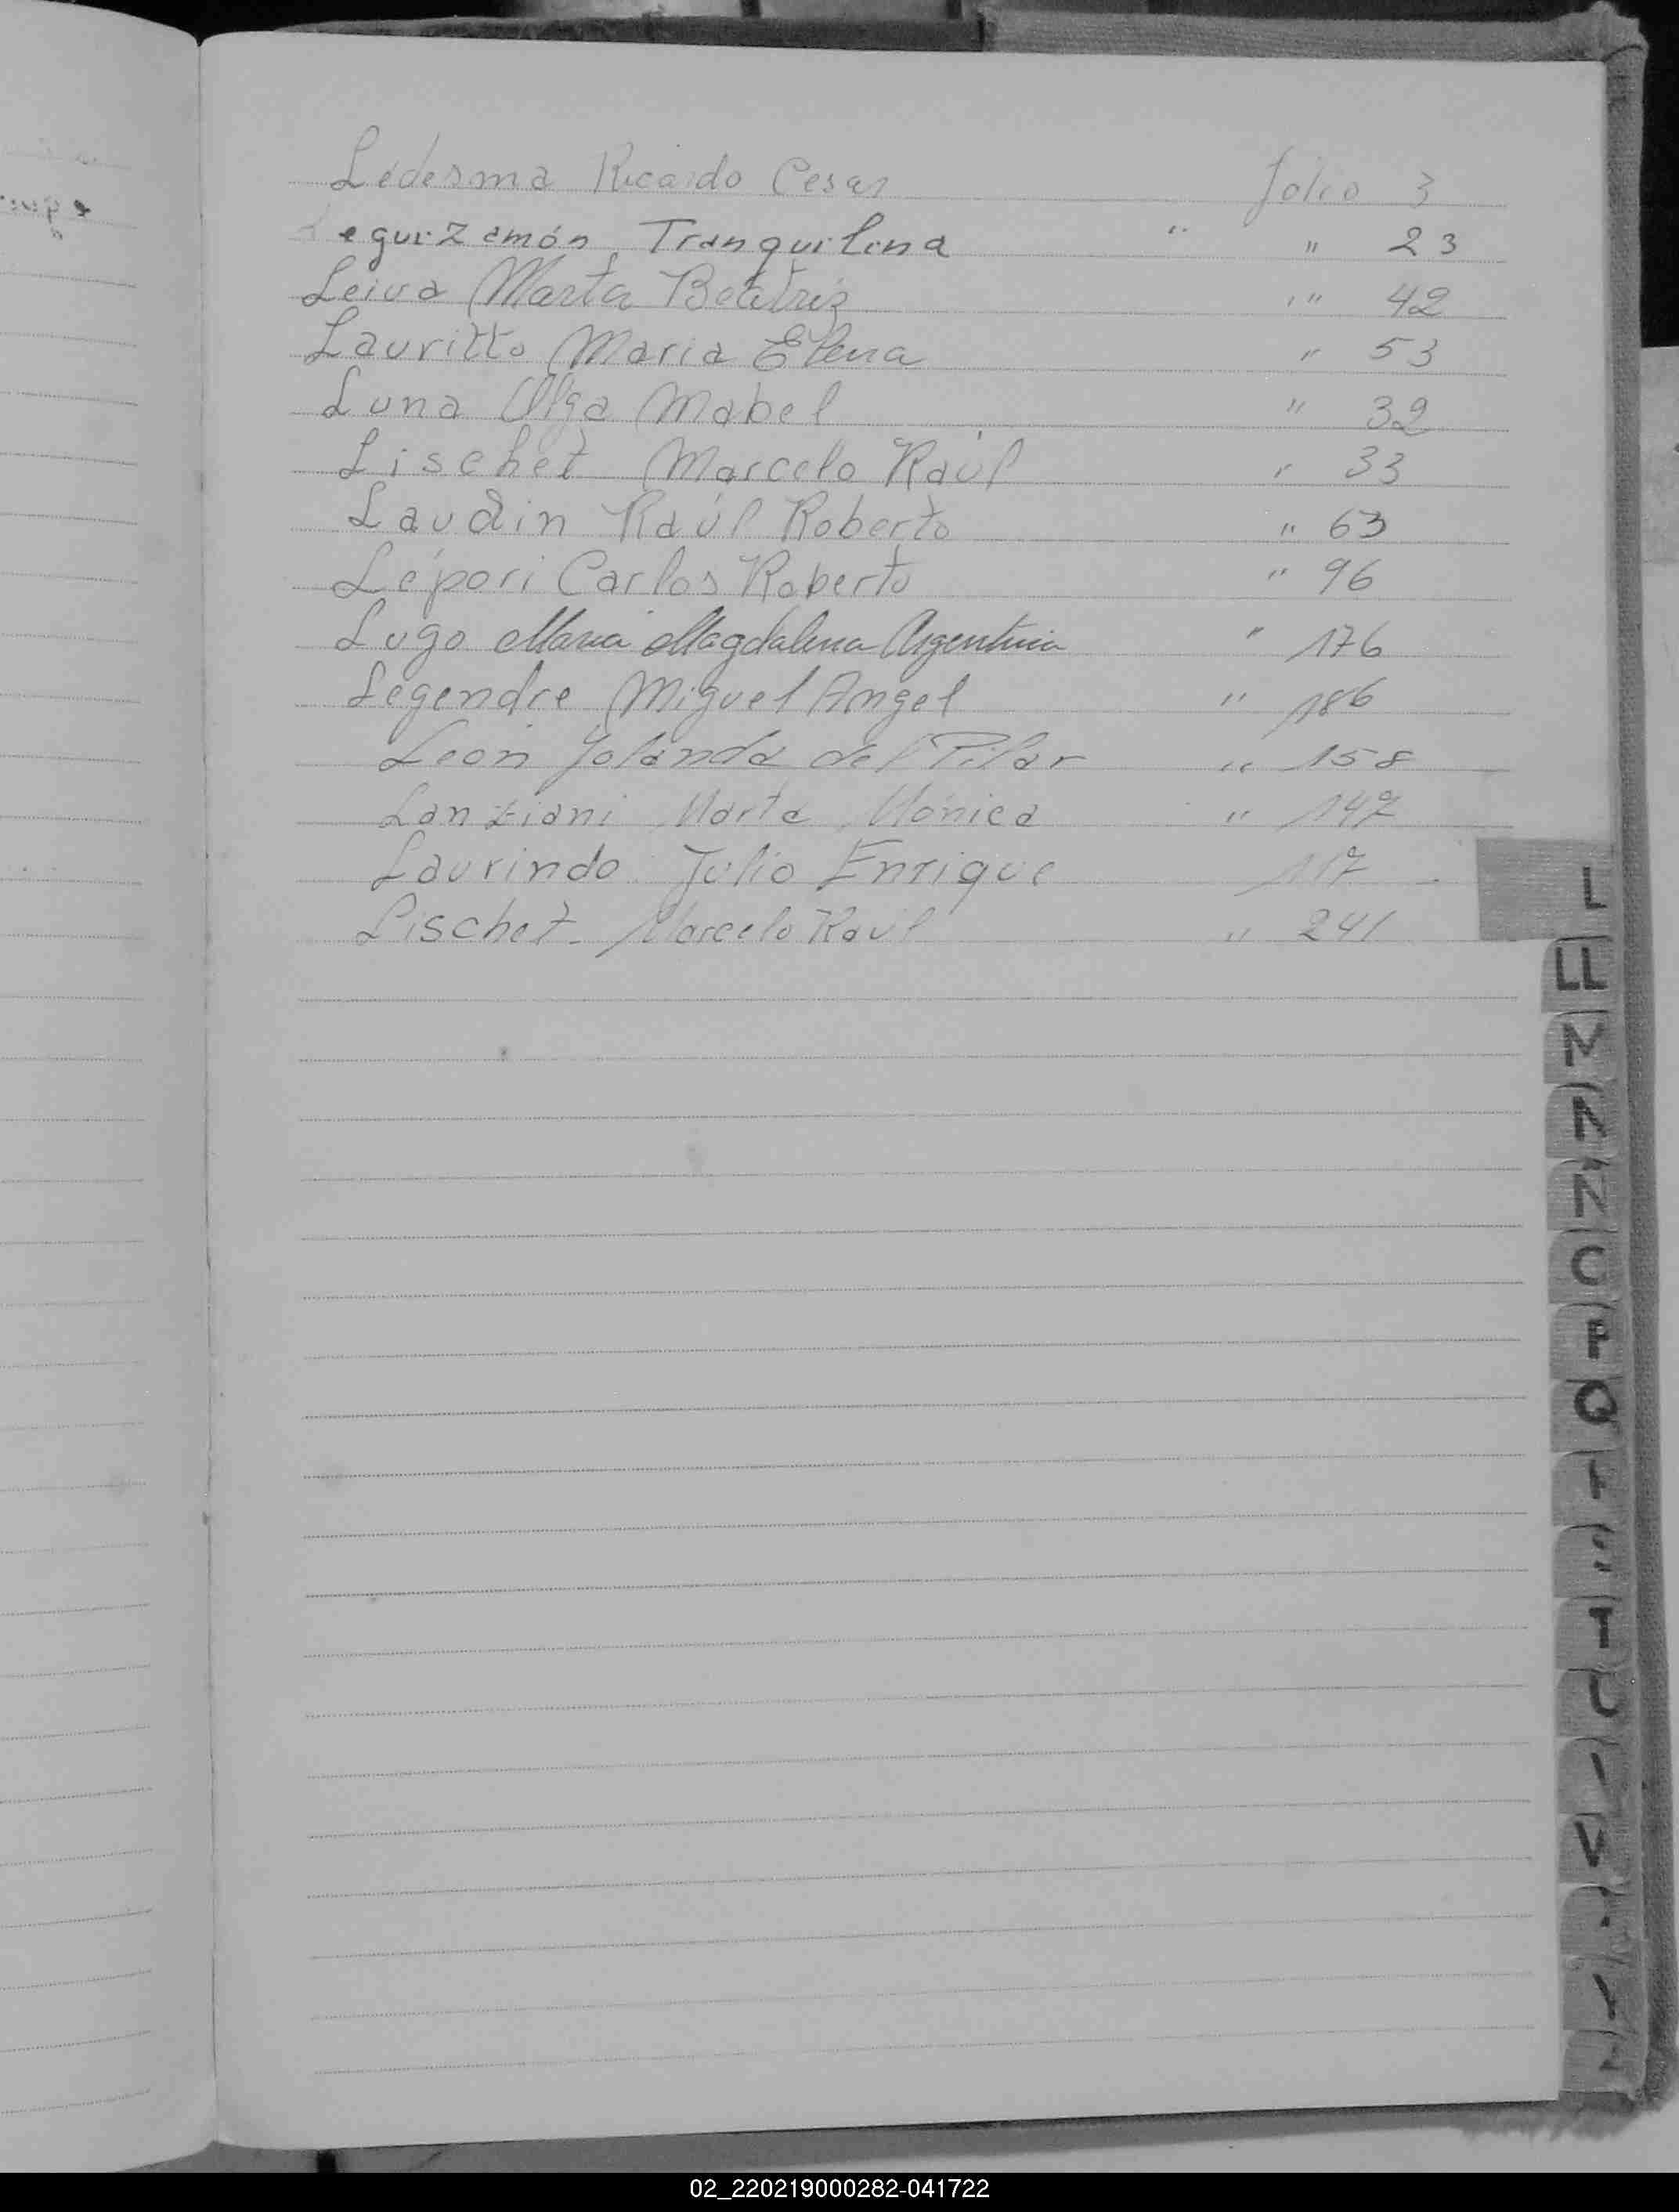 Ledesma Ricardo Cesar folio 3
Leguizamón Tranquilina " " 23
Leiva Marta Beatriz " 42
Lauritto Maria Elena " 53
Luna Olga Mabel " 32
Lischet Marcelo Raúl " 33
Laudin Raúl Roberto " 63
Lépori Carlos Roberto " 96
Lugo Maria Magdalena Argentina " 176
Legendre Miguel Angel " 186
Leon Yolanda del Pilar " 158
Lanziani Marta Mónica " 147
Laurindo Julio Enrique 117
Lischet Marcelo Raúl " 241
L
LL
M
N
Ñ
O
P
Q
T
V
02_220219000282-041722